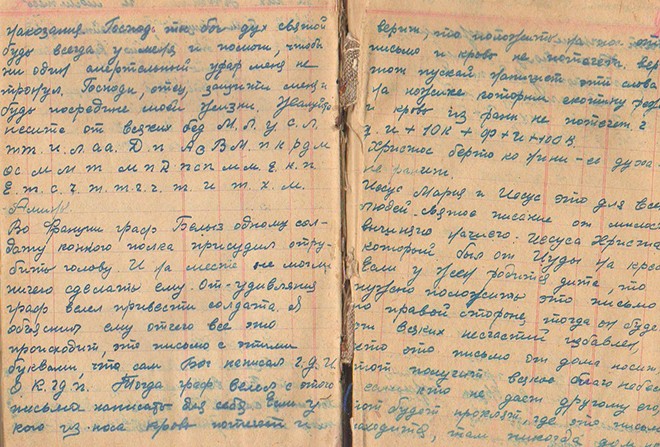 наказания. Господ: ты бог дух святой
будь всегда у меня и помоги, чтобы
ни один смертельный удар меня не
тронул. Господи, отец, защити меня
будь посредине моей жизни. Защити
несите от всяких бед М. Л. У. С. Л.
т. и. л аа. Д. п А з В М. п к р д м
ос м. м т м п R п сп м м. Е. к. п
Е. т. с. ч. т. т. г. ч. т. и т. х. м.
Аминь.
Во Франции граф Белыз одному сол-
дату конного полка присудил отру-
бить голову. И на месте не могли
ничего сделать ему. От-удивления
граф велел привести солдата. А
объяснил ему отчего все это
происходит, это письмо с этими
буквами, что сам Бог написал г. д. И.
К. гд п. Тогда граф велел с этого
письма написать для себя. Если у
кого из носа кровь потечет и
верит, то положить на нос это
письмо и кровь не потечет.
тот пускай напишет эти слова
на ножике которым скотину реж
и кровь из раны не потечет. г
з. и + 10к + Ф + и + 100 в.
Христос берто ко рени - се духа
не ранит.
Иесус Мария и Иесус это для все
людей святое писание от милост
Иесуса Христа
который был от Иуды на крес
Если у жен родится дите, то
нужно положить это письмо
по правой стороне, тогда он буде
от всяких несчастий избавлен,
кто это письмо от дома носит
тот получает всякое благо небес
кто не даст другому его
тот будет проклят, где это письмо
находится, там никогда дом не